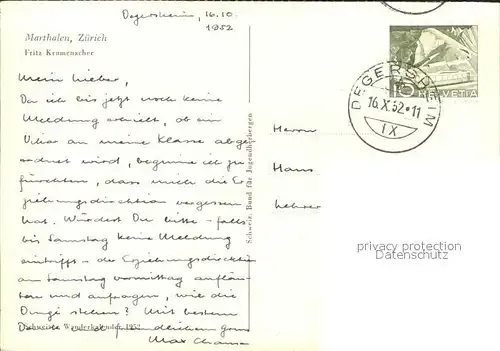 Degersheim, 16.10.
1952
Marthalen, Zürich
Fritz Krumenacher
Mein lieber,
Da ich bis jetzt noch keine
Meldung erhielt, ob ein
Vikar an meine Klasse abge-
ordnet wird, beginne ich zu
fürchten, dass mich die Er-
ziehungsdirektion vergessen
hat. Würdest Du bitte - falls
bis Samstag keine Meldung
eintrifft - die Erziehungsdirektion
am Samstag vormittag anläu-
ten und anfragen, wie die
Dinge stehen? Mit bestem
Dank und freundlichem Gruss
Max
Schweizer Wanderkalender 1952
Schweiz. Bund für Jugendherbergen
DEGERSHEIM
16.X.52·11
IX
10
HELVETIA
Herrn
Hans
Lehrer
privacy protection
Datenschutz